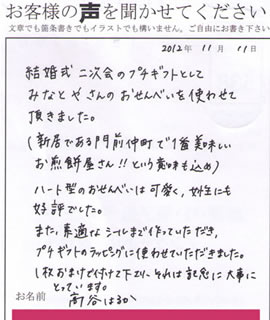 お客様の声を聞かせてください
文章でも箇条書きでもイラストでも構いません。ご自由にお書き下さい
2012年 11月 11日
結婚式二次会のプチギフトとして
みなとやさんのおせんべいを使わせて
頂きました。
(新居である門前仲町で1番美味しい
お煎餅屋さん!!という意味も込め)
ハート型のおせんべいは可愛く、女性にも
好評でした。
また、素適なシールまで作っていただき、
プチギフトのラッピングに使わせていただきました。
1枚おまけで付けて下さり、それは記念に大事に
とっています。
お名前